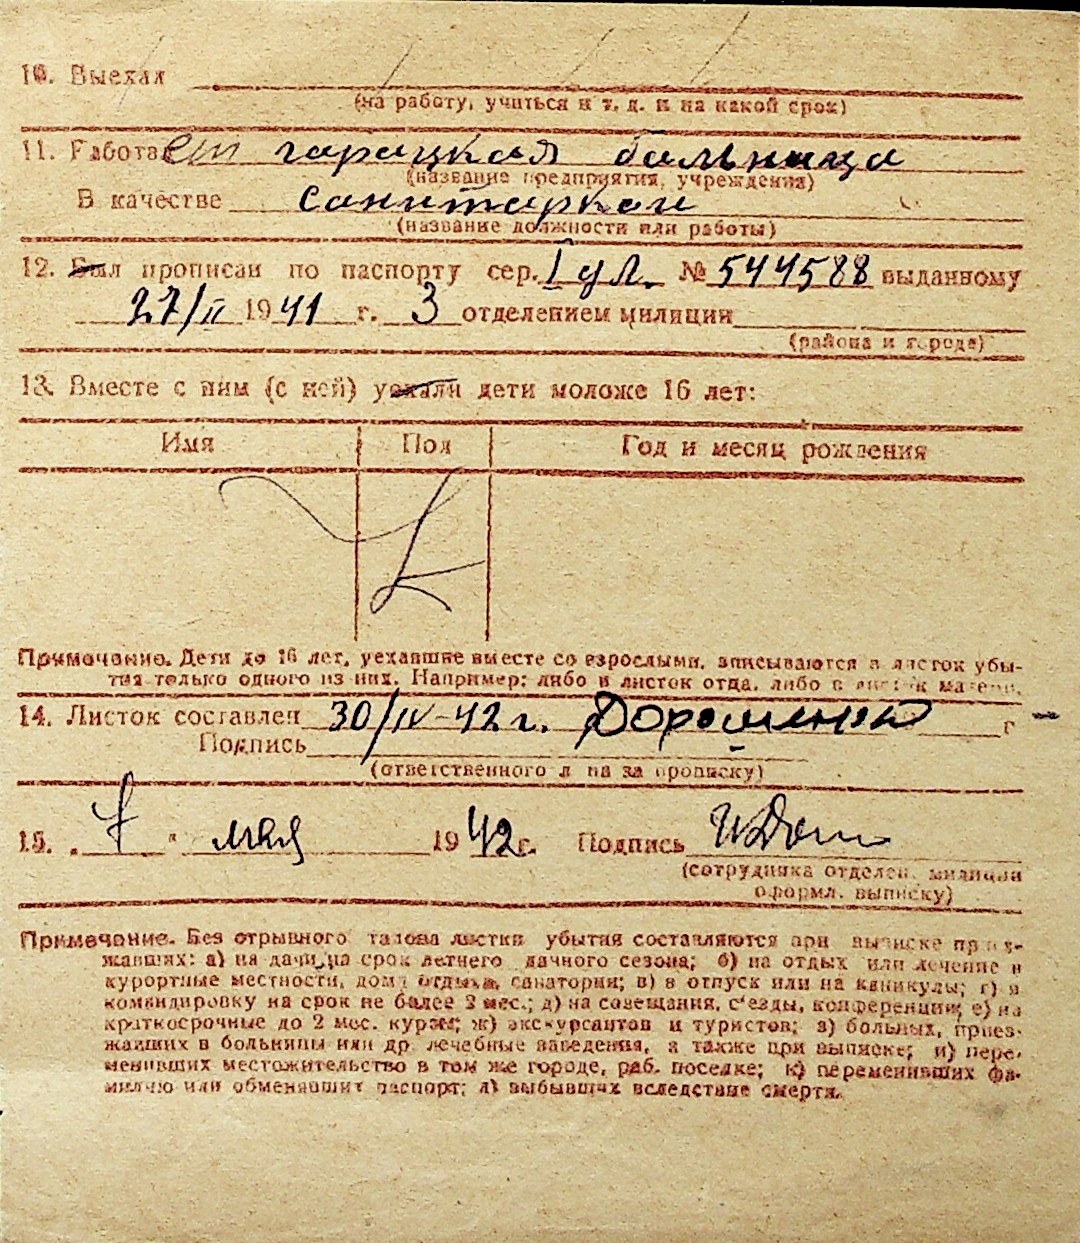 10. Выехал
(на работу, учиться и т. д. и на какой срок)
11. Работает городская больница
(название предприятия, учреждения)
В качестве санитаркой
(название должности или работы)
12. Был прописан по паспорту сер. № 544588 выданному
27/II 1941 г. 3 отделением милиции
(района и города)
13. Вместе с ним (с ней) уехали дети моложе 16 лет:
Имя Пол Год и месяц рождения
Примечание. Дети до 16 лет, уехавшие вместе со взрослыми, записываются в листок убы-
тия только одного из них. Например: либо в листок отца, либо в листок матери.
14. Листок составлен 30/IV-42 г. Дорошенко г
Подпись
(ответственного лица за прописку)
15. „ 7 " мая 1942 г. Подпись
(сотрудника отделен. милиции
оформл. выписку)
Примечание. Без отрывного талона листки убытия составляются при выписке приез-
жавших: а) на дачи на срок летнего дачного сезона; б) на отдых или лечение в
курортные местности, дома отдыха, санатории; в) в отпуск или на каникулы; г) в
командировку на срок не более 2 мес.; д) на совещания, с'езды, конференции; е) на
краткосрочные до 2 мес. курсы; ж) экскурсантов и туристов; з) больных, приез-
жавших в больницы или др. лечебные заведения, а также при выписке; и) пере-
менивших местожительство в том же городе, раб. поселке; к) переменивших фа-
милию или обменявших паспорт; л) выбывших вследствие смерти.